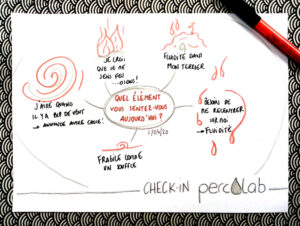 JE CROIS
QUE JE NE
FLUIDITÉ DANS
MON TERRIER
QUEL ÉLÉMENT
VOUS SENTEZ-VOUS
AUJOURD'HUI ?
1/04/20
J'AIME QUAND
IL Y A DE VENT
→ ANNONCE AUTRE CHOSE !
BESOIN DE
ME RECENTRER
SUR MOI
→ FLUIDITÉ
FRAGILE COMME
UN SOUFFLE
CHECK-IN percolab